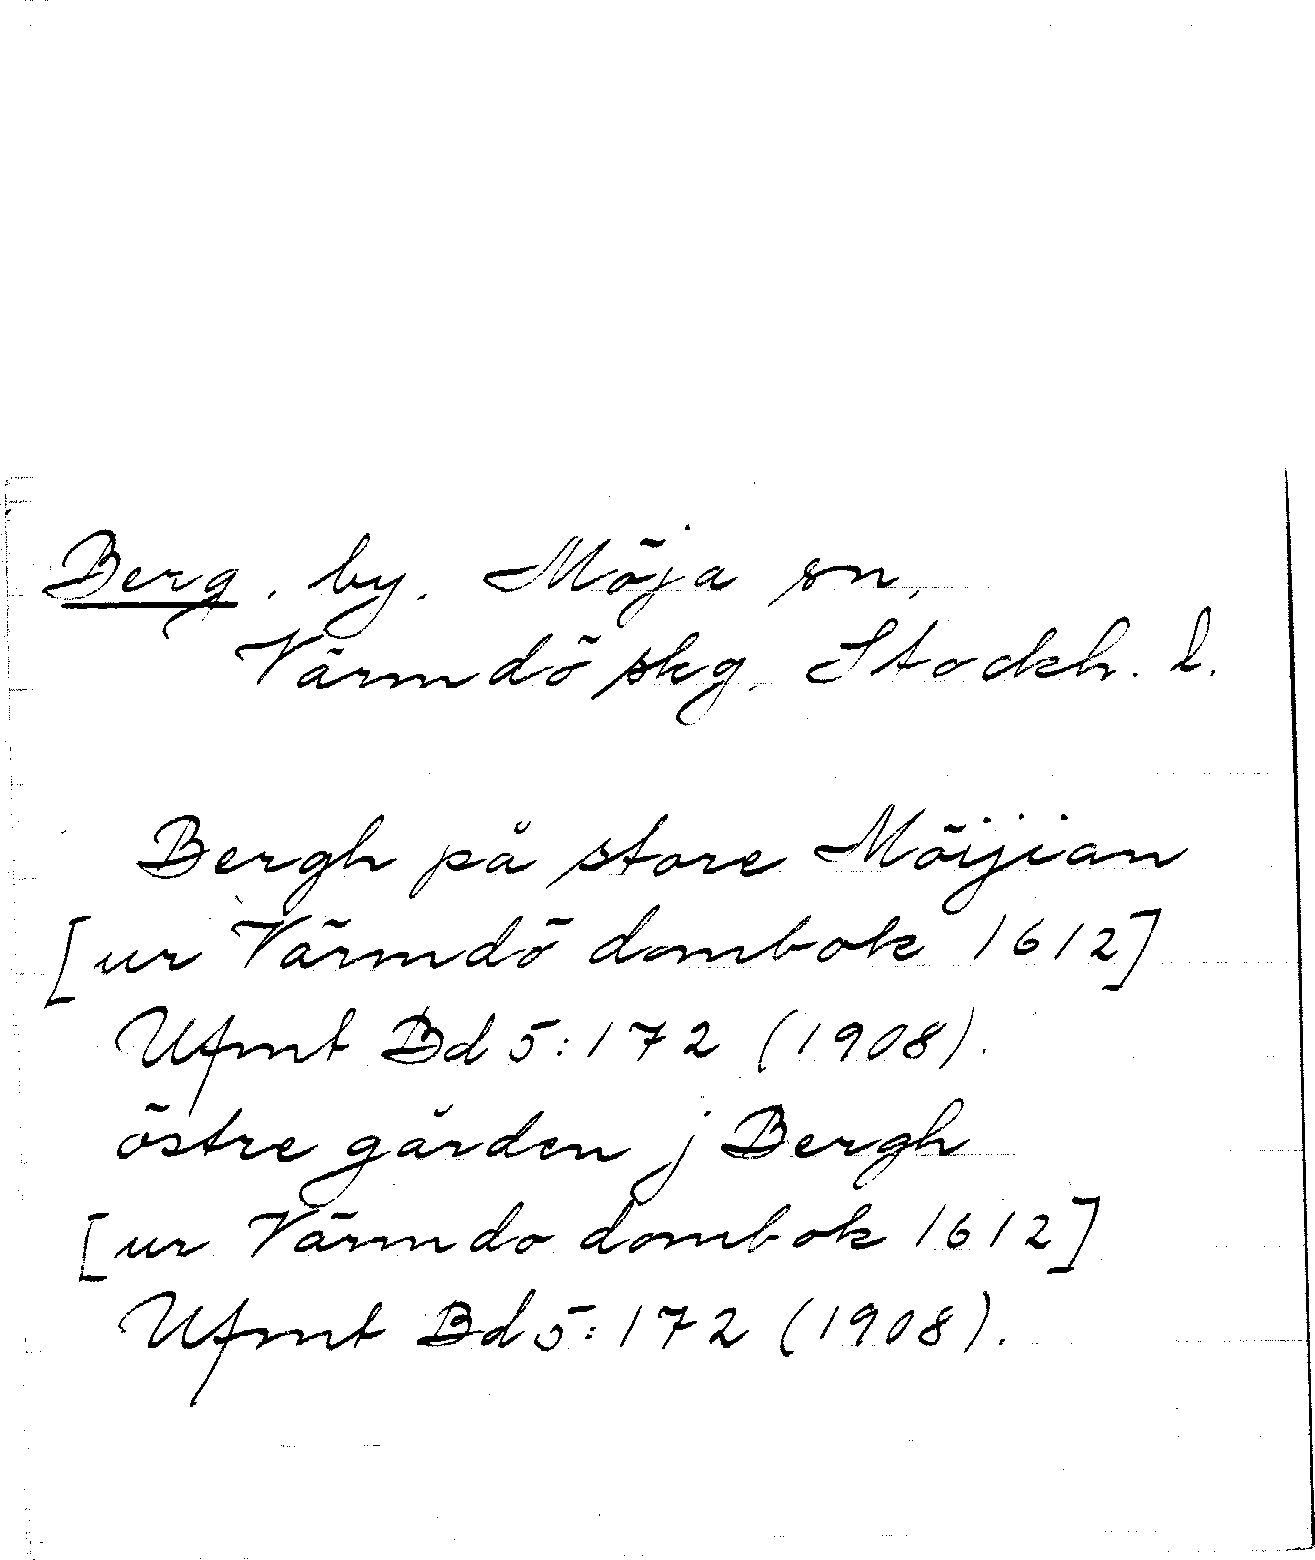 Berg, by, Möja sn,
Värmdö skg, Stockh. l.
Bergh på store Möijian
[ur Värmdö dombok 1612]
Ufmt Bd 5:172 (1908).
östre gården j Bergh
[ur Värmdo dombok 1612]
Ufmt Bd 5:172 (1908).